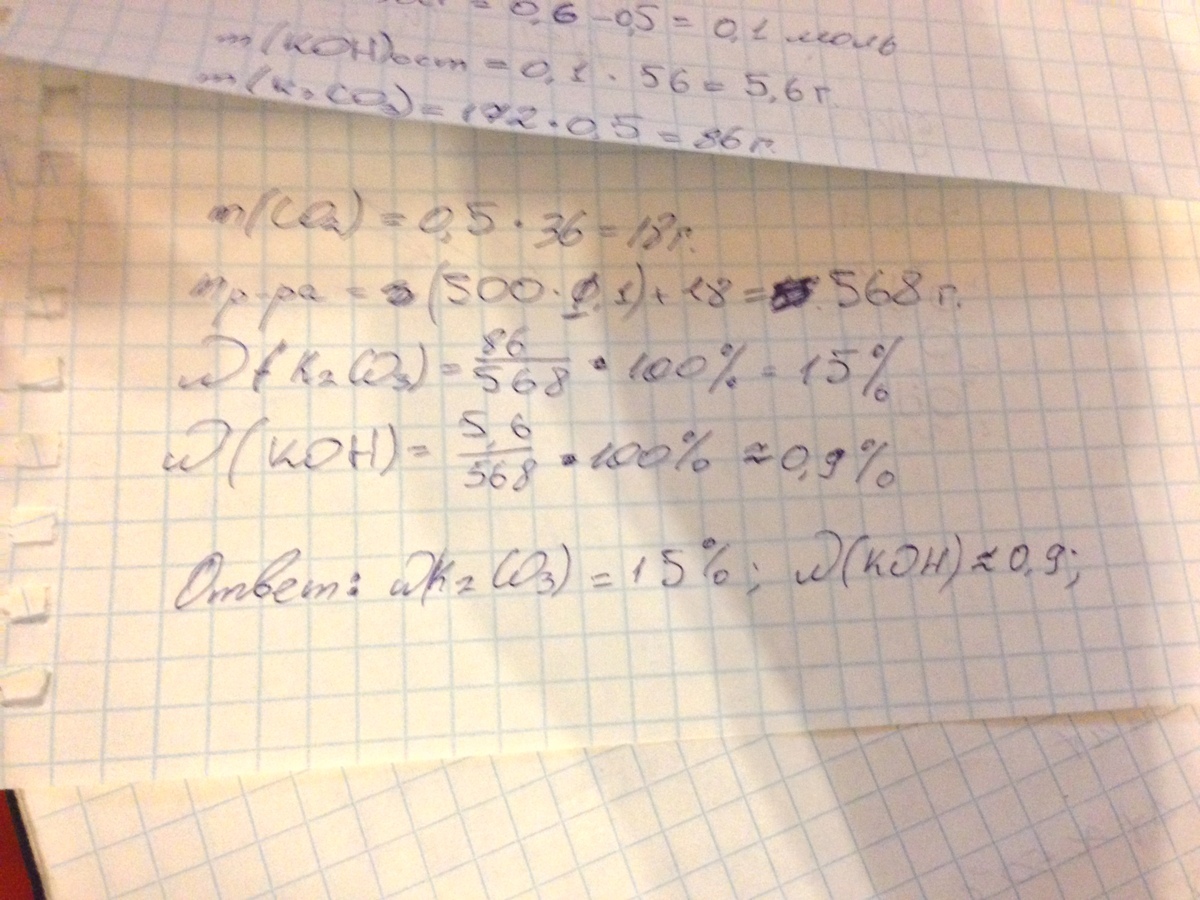 = 0,6 - 0,5 = 0,1 моль
m(KOH)ост = 0,1 · 56 = 5,6 г.
m(K₂CO₃) = 172 · 0,5 = 86 г.
m(CO₂) = 0,5 · 36 = 18 г.
m р-ра = (500 · 1,1) + 18 = 568 г.
W(K₂CO₃) = 86/568 · 100% = 15%
W(KOH) = 5,6/568 · 100% ≈ 0,9%
Ответ: W(K₂CO₃) = 15%; W(KOH) ≈ 0,9;